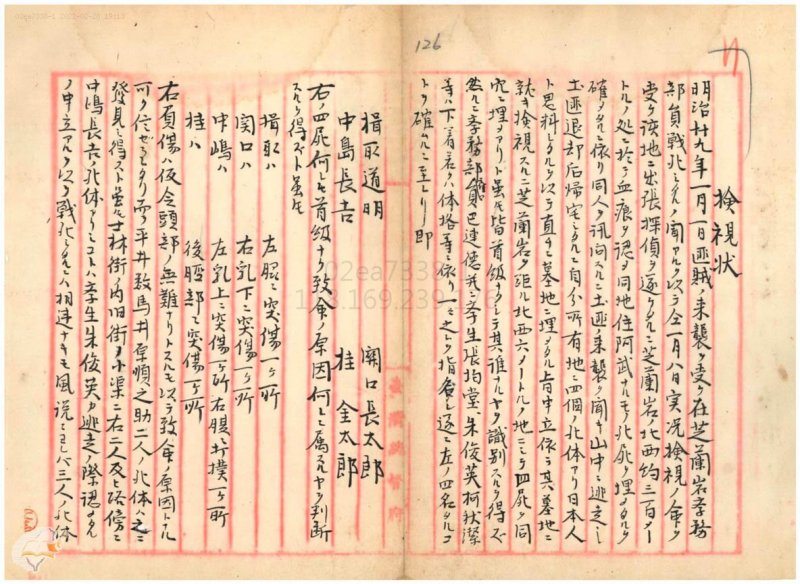 検視状
明治廿九年一月一日匪賊ノ来襲ヲ受ケ在芝蘭岩学務
部員戦死シタルノ聞アルヲ以テ仝一月八日実況検視ノ命ヲ
受ケ該地ニ出張探偵ヲ遂ケタルニ芝蘭岩ノ北西約三百メー
トルノ処ニ於テ血痕ヲ認メ同地住阿武ナルモノ死屍ヲ埋メタルヲ
確メタルニ依リ同人ヲ訊問スルニ土匪来襲ヲ聞キ山中ニ逃走シ
土匪退却后帰宅シタルニ自分所有地ニ四個ノ死体アリ日本人
ト思料シタルヲ以テ直チニ墓地ニ埋メタル旨申立依テ其墓地ニ
就キ検視スルニ芝蘭岩ヲ距ル北西六メートルノ地ニシテ四屍ヲ同
穴ニ埋メアリト雖モ皆首級ナクシテ其誰ナルヤヲ識別スルヲ得ズ
然ルニ学務部雇員巴連徳并ニ学生張均堂、朱俊英柯秋潔
等ハ下着若クハ体格等ニ依リ一々之ヲ指名シ遂ニ左ノ四名タルコ
トヲ確ムルニ至レリ即
楫取道明 関口長太郎
中島長吉 桂 金太郎
右ノ四屍何レモ首級ナク致命ノ原因何レニ属スルヤヲ判断
スルヲ得ズト雖モ
楫取ハ 左脇ニ突傷一ヶ所
関口ハ 右乳下ニ突傷一ヶ所
中嶋ハ 左乳上ニ突傷一ヶ所右腹打撲一ヶ所
桂ハ 後腔部ニ突傷一ヶ所
右負傷ハ仮令頭部ノ無難ナリトスルモ以テ致命ノ原因トナル
可ヲ信ゼシメタリ而テ平井数馬井原順之助二人ノ死体ハ之ヲ
發見シ得スト雖モ士林街ノ内旧街ノ小渠ニ右二人及ヒ路傍ニ
中嶋長吉ノ死体アリシコトハ学生朱俊英カ逃走ノ際認メタル
ノ申立アルヲ以テ戦死シタルニハ相違ナキモ風説ニヨレバ三人ノ死体
126
02ea7338-1 2022-02-28 19:13